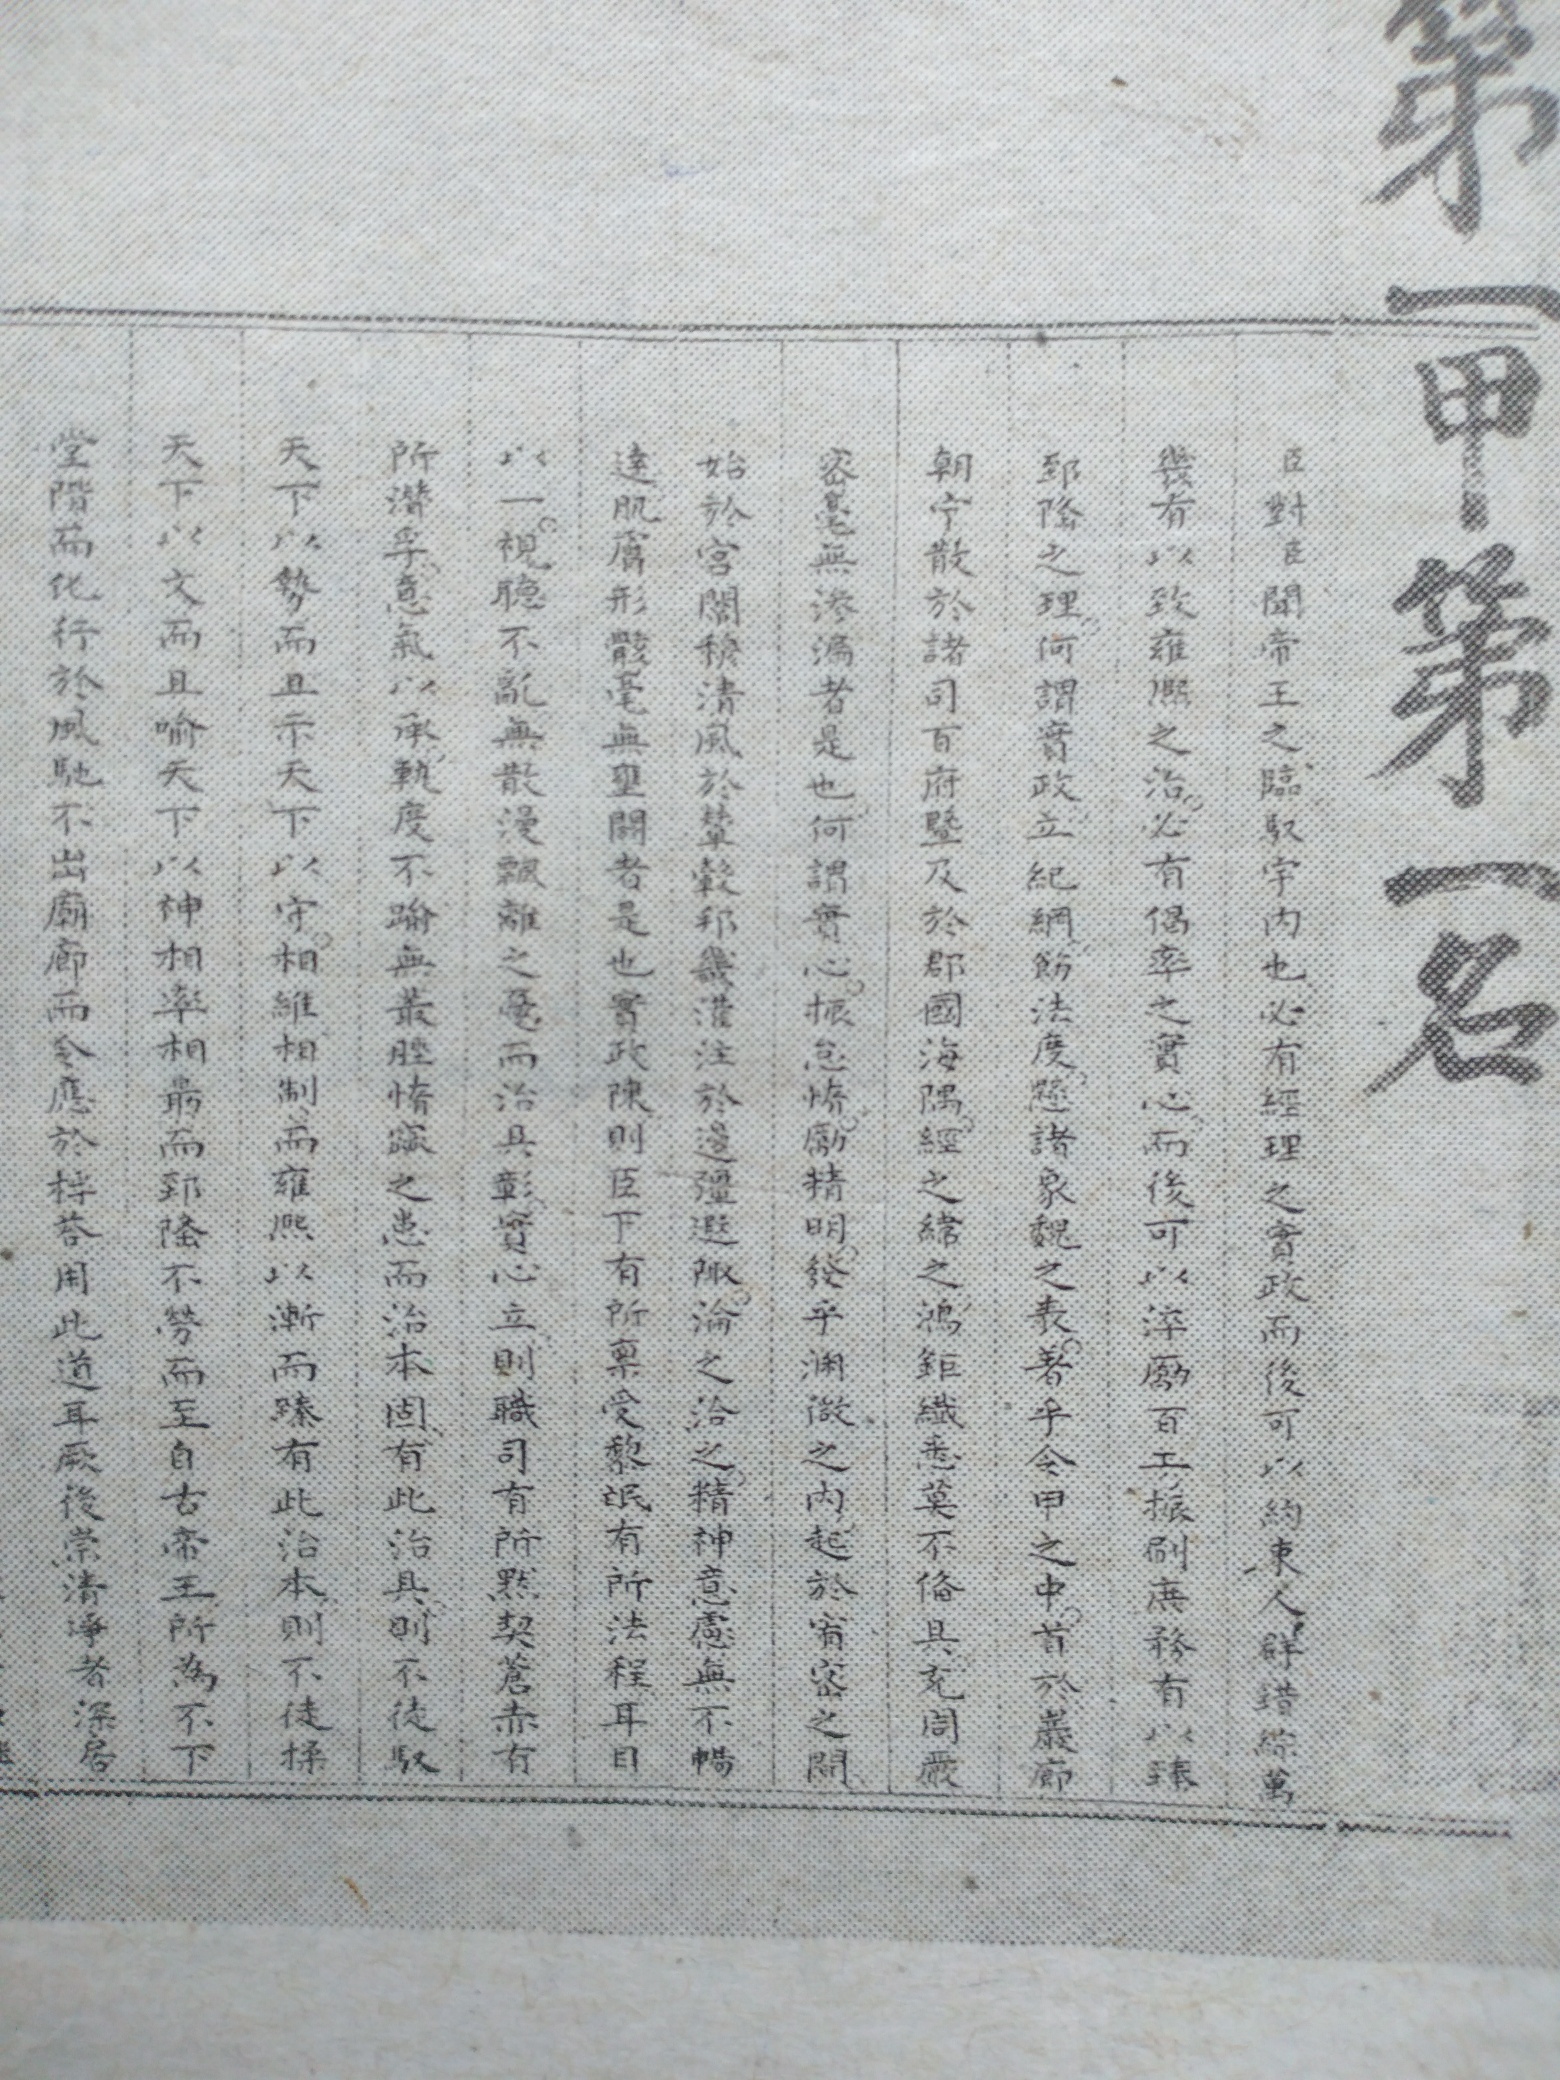 第一甲第一名
臣對臣聞帝王之臨馭宇内也必有經理之實政而後可以約束人群錯綜萬
幾有以致雍熙之治必有倡率之實心而後可以淬勵百工振刷庶務有以臻
郅隆之理何謂實政立紀綱飭法度懸諸象魏之表著乎令甲之中首於巖廊
朝宁散於諸司百府暨及於郡國海隅經之緯之鴻鉅纖悉莫不俻具充周嚴
密毫無滲漏者是也何謂實心振怠惰勵精明發乎淵微之内起於宥密之間
始於宮闈穆清風於輦轂邦畿灌注於邊疆遐陬淪之洽之精神意慮無不暢
達肌膚形骸毫無壅閼者是也實政陳則臣下有所稟受黎氓有所法程耳目
以一視聽不亂無散漫飄離之憂而治具彰實心立則職司有所默契蒼赤有
所潛孚意氣以承軌度不踰無叢脞惰窳之患而治本固有此治具則不徒馭
天下以勢而且示天下以守相維相制而雍熙以漸而臻有此治本則不徒操
天下以文而且喻天下以神相率相勗而郅隆不勞而至自古帝王所為不下
堂階而化行於風馳不出廟廊而令應於桴答用此道耳厥後崇清凈者深居